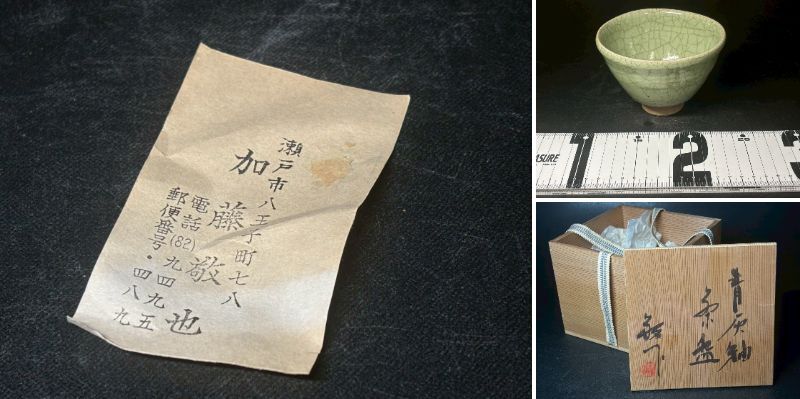 瀬戸市八王子町七八
加藤敬也
電話(82)九四九五
郵便番号・四八九
ASURE
1 2 3
青灰釉
茶盌